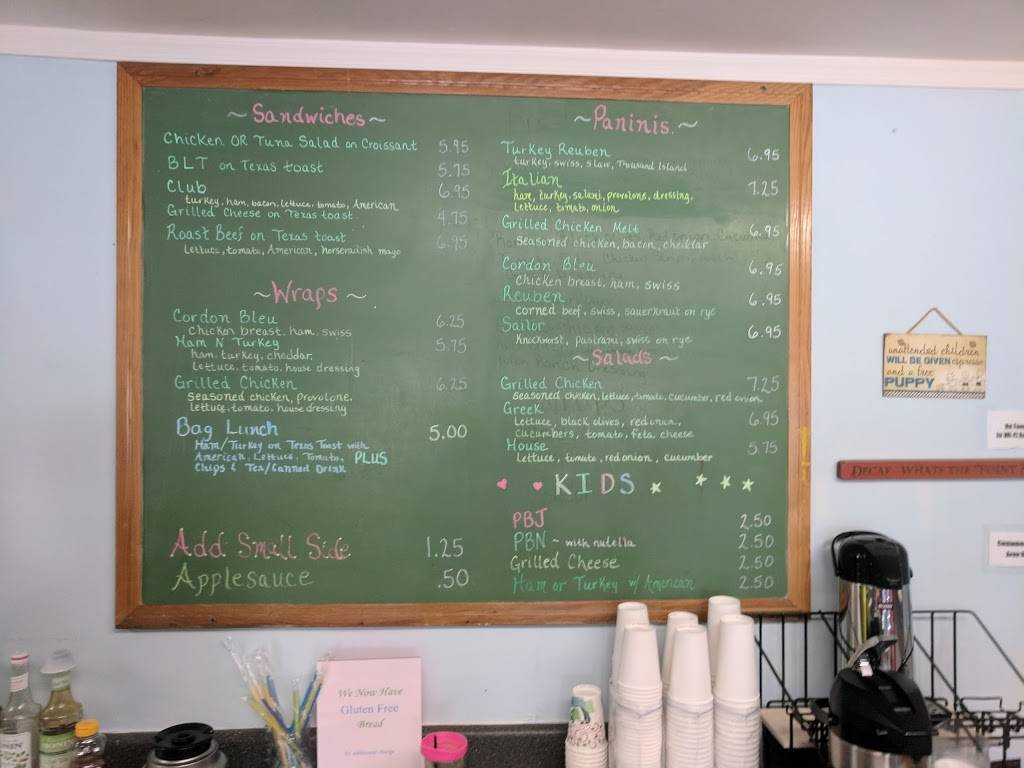 ~Sandwiches~
Chicken OR Tuna Salad on Croissant 5.95
BLT on Texas toast 5.75
Club 6.95
turkey, ham, bacon, lettuce, tomato, American
Grilled Cheese on Texas toast 4.75
Roast Beef on Texas toast 6.95
Lettuce, tomato, American, horseradish mayo
~Wraps~
Cordon Bleu 6.25
Chicken breast, ham, swiss
Ham N Turkey 5.75
ham, turkey, cheddar,
Lettuce, tomato, house dressing
Grilled Chicken 6.25
seasoned chicken, provolone,
lettuce, tomato, house dressing
Bag Lunch 5.00
Ham/Turkey on Texas Toast with
American, Lettuce, Tomato, PLUS
Chips & Tea/Canned Drink
Add Small Side 1.25
Applesauce .50
~Paninis~
Turkey Reuben 6.95
turkey, swiss, slaw, Thousand Island
Italian 7.25
ham, turkey, salami, provolone, dressing,
lettuce, tomato, onion
Grilled Chicken Melt 6.95
seasoned chicken, bacon, cheddar
Cordon Bleu 6.95
Chicken breast, ham, swiss
Reuben 6.95
corned beef, swiss, sauerkraut on rye
Sailor 6.95
Knockwurst, pastrami, swiss on rye
~Salads~
Grilled Chicken 7.25
seasoned chicken, lettuce, tomato, cucumber, red onion
Greek 6.95
Lettuce, black olives, red onion,
cucumbers, tomato, feta cheese
House 5.75
Lettuce, tomato, red onion, cucumber
KIDS
PBJ 2.50
PBN ~ with nutella 2.50
Grilled Cheese 2.50
Ham or Turkey w/ American 2.50
unattended children
WILL BE GIVEN espresso
and a free
PUPPY
DECAF... WHAT'S THE POINT
We Now Have
Gluten Free
Bread